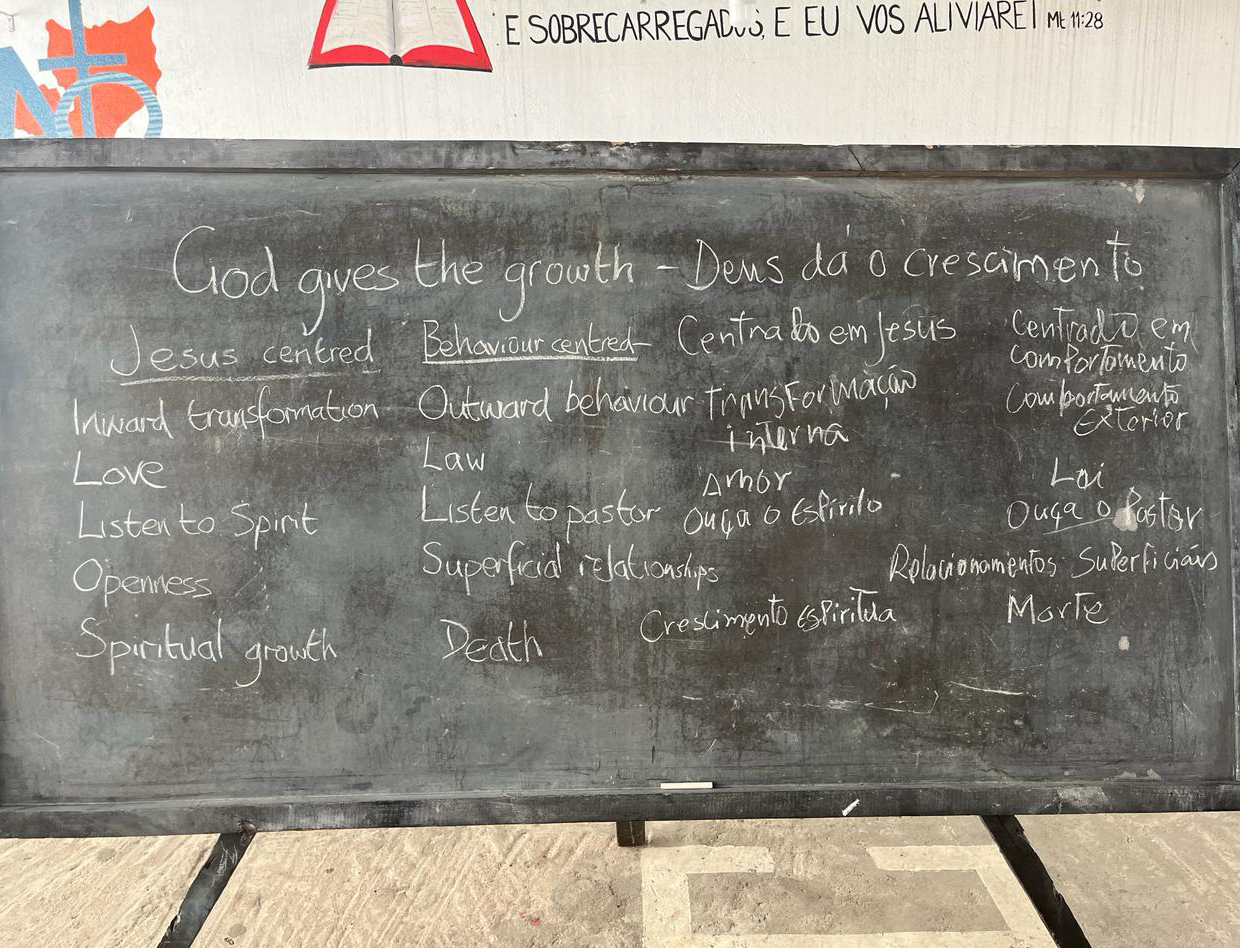 E SOBRECARREGADOS, E EU VOS ALIVIAREI Mt 11:28
God gives the growth - Deus dá o crescimento
Jesus centred
Inward transformation
Love
Listen to Spirit
Openness
Spiritual growth
Behaviour centred
Outward behaviour
Law
Listen to pastor
Superficial relationships
Death
Centrado em Jesus
Transformação
interna
Amor
Ouça o Espírito
Crescimento espiritua
Centrado em
comportamento
Comportamento
Exterior
Lei
Ouça o Pastor
Relacionamentos Superficiais
Morte